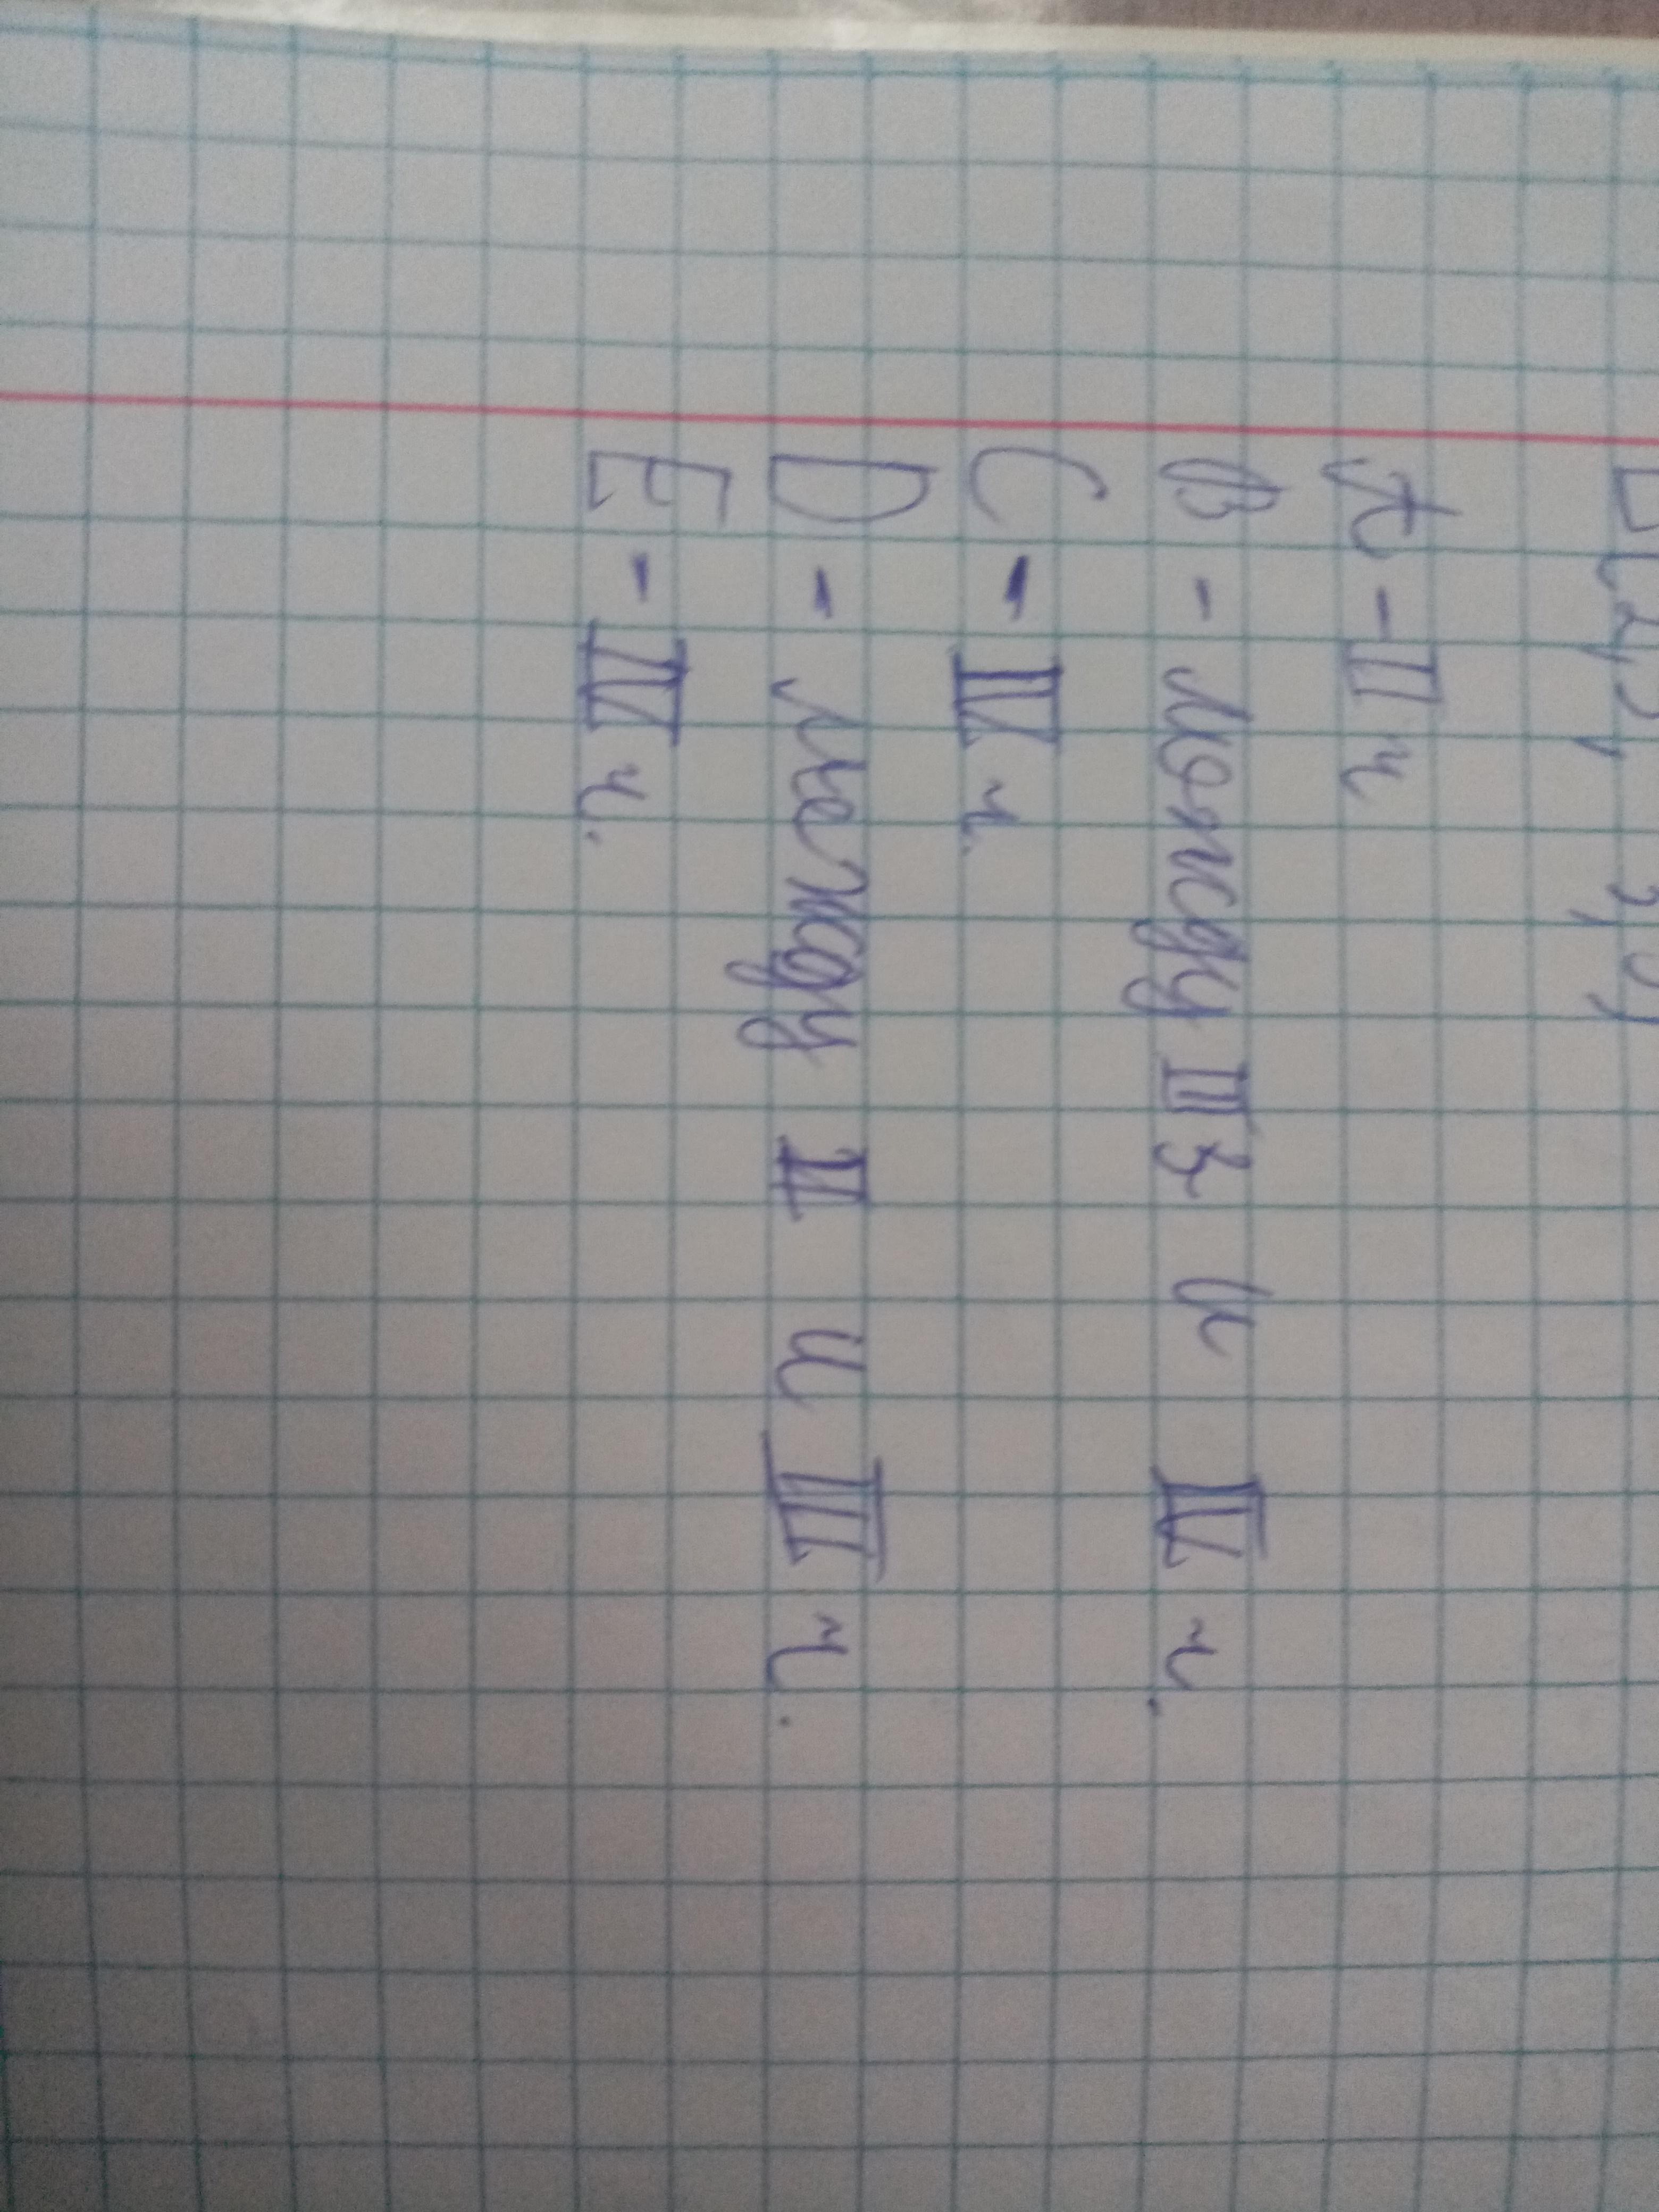 A - II ч
B - между III з и IV ч.
C - IV ч.
D - между II и III ч.
E - IV ч.